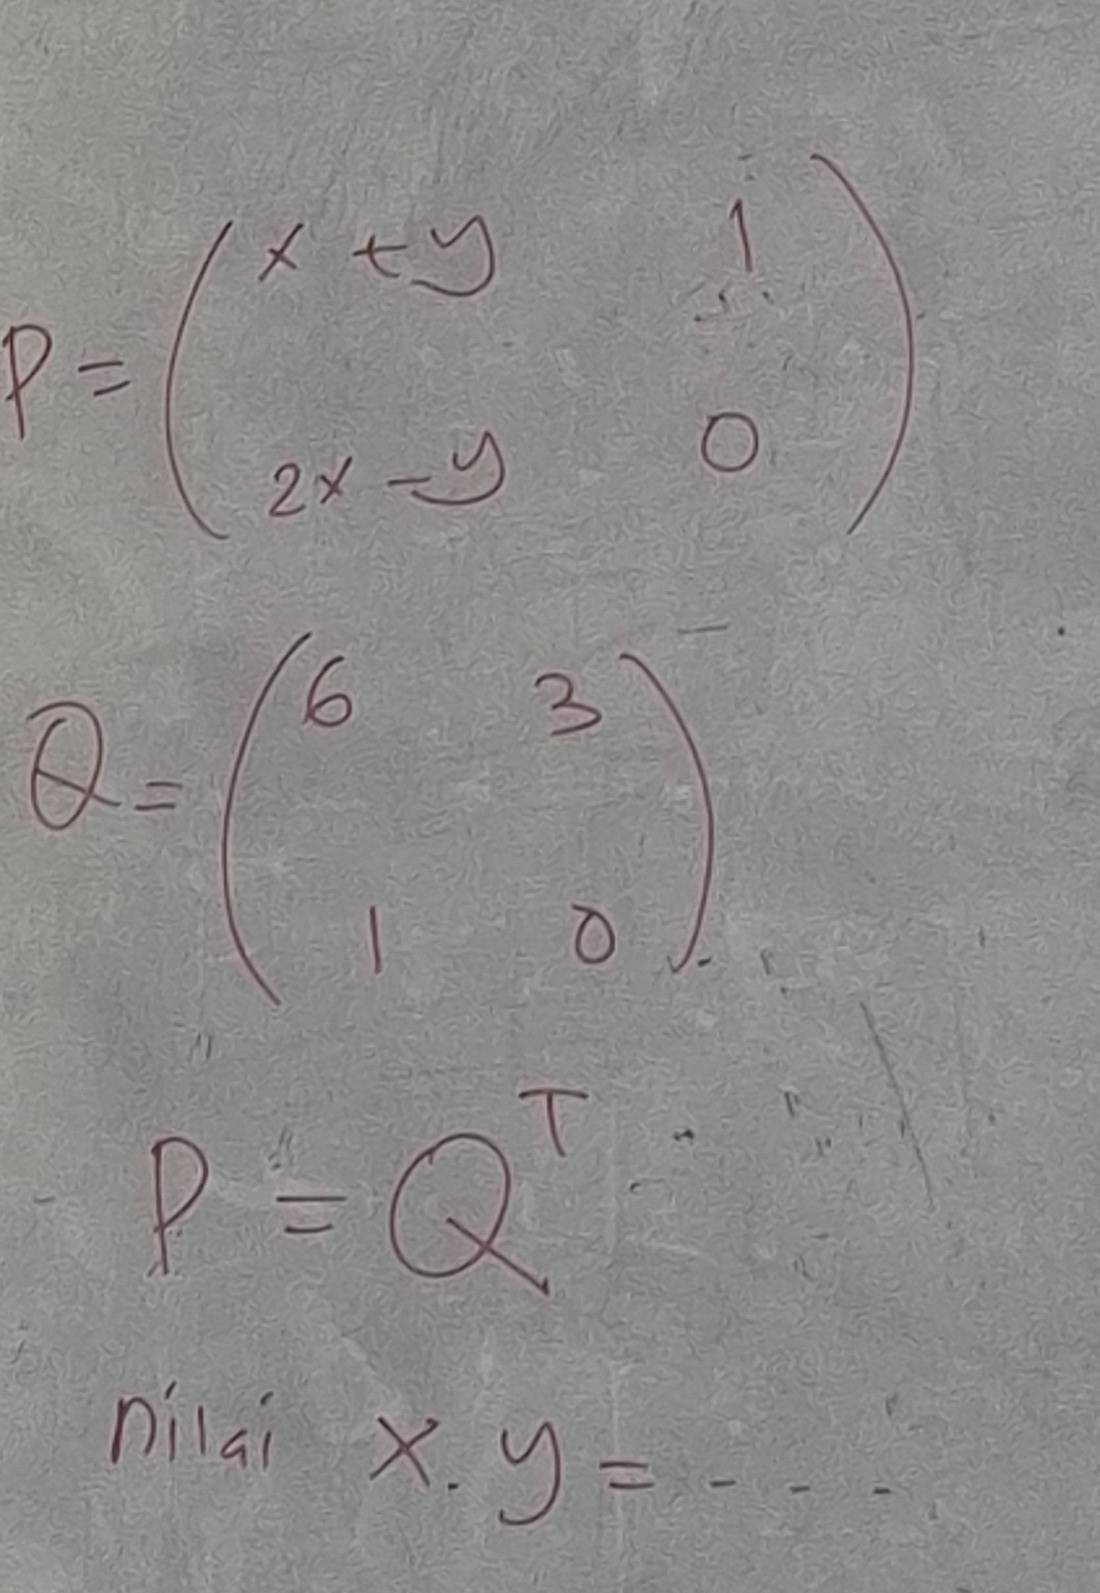 P = ( x + y 1
2x - y 0 )
Q = ( 6 3
1 0 )
P = Q^T
nilai x . y = - - - -